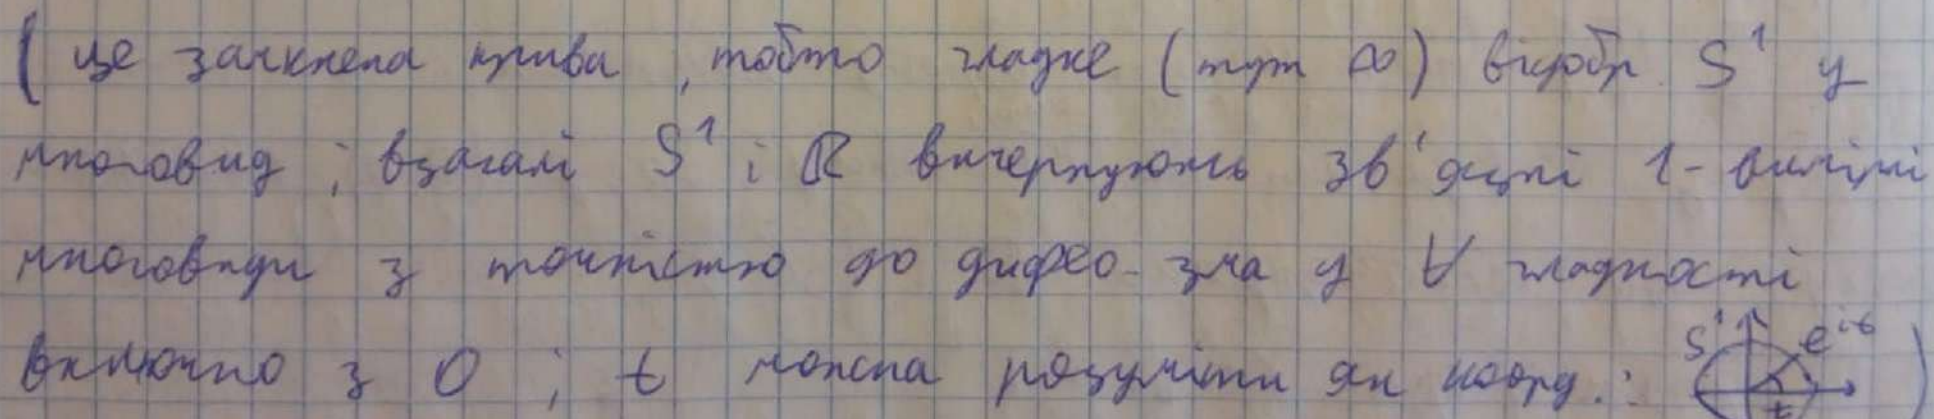 (це замкнена крива, тобто гладке (тут ∞) відобр. S¹ у
многовид; взагалі S¹ і ℝ вичерпують зв'язні 1-вимірні
многовиди з точністю до дифео-зма у ∀ гладкості
включно з 0; t можна розуміти як коорд.: S¹ e^{it} t)